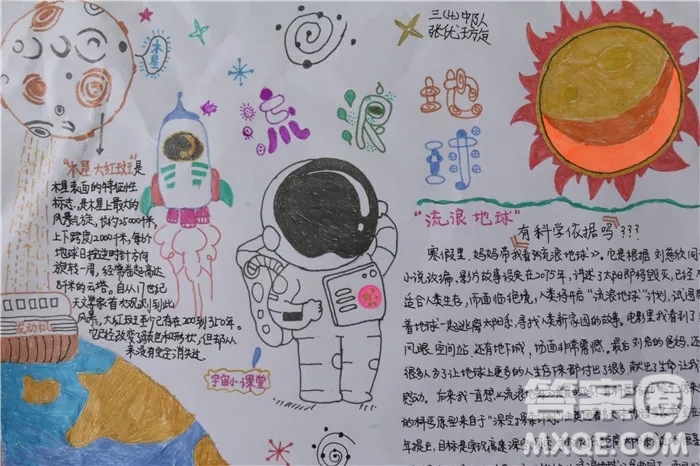 三(4)中队
张优
木星
流浪
地球
"木星大红斑"是
木星表面的特征性
标志,是木星上最大的
风暴气旋,长约25000千米,
上下跨度12000千米,每6个
地球日按逆时针方向
旋转一周,经常卷起高达
8千米的云塔。自从17世纪
天文学家首次观测到此
风暴,大红斑至今已存在200到350年。
它时常改变颜色和形状,但却从
来没有完全消失过
宇宙小课堂
发动机
"流浪地球"
有科学依据吗???
寒假里,妈妈带我看《流浪地球》。它是根据刘慈欣同
小说改编,影片故事设定在2075年,讲述了太阳即将毁灭,已经
适合人类生存,而面临绝境,人类将开启"流浪地球"计划,试图
着地球一起逃离太阳系,寻找人类新家园的故事。电影里我看到了
风眼、空间站,还有地下城,场面非常震撼。最后刘启的爸妈,还
很多人为了让地球上更多的人生存下来都付出了很多,献出了生命,让我
感动。后来我一直想《流浪地球
的科学原型来自于"深空
年提出,目标是实现高速深
答案圈
MXQE.COM